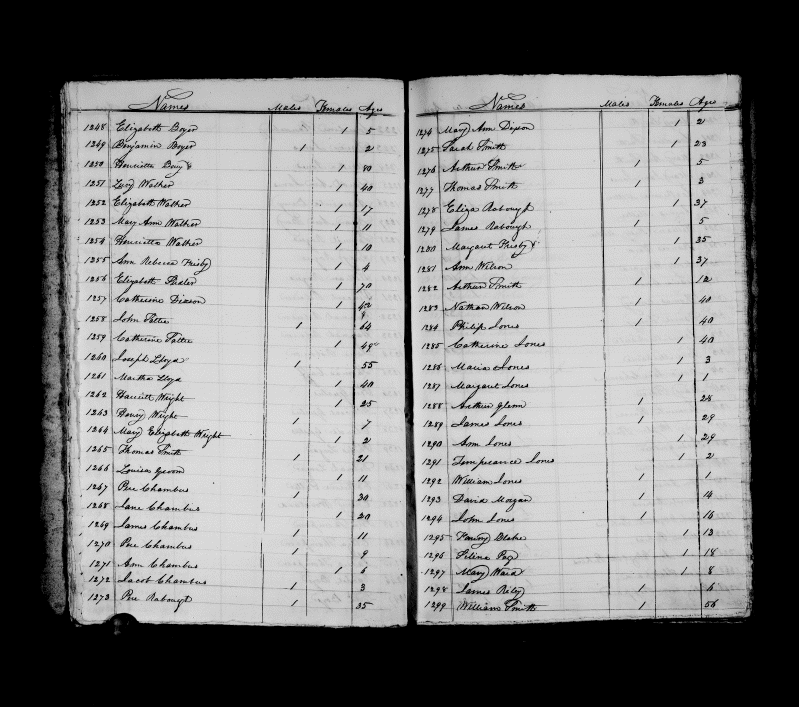 Names Males Females Ages
1248 Elizabeth Boyer 1 5
1249 Benjamin Boyer 1 2
1250 Henrietta 1 80
1251 Lucy Walker 1 40
1252 Elizabeth Walker 1 17
1253 Mary Ann Walker 1 11
1254 Henrietta Walker 1 10
1255 Ann Rebecca Frisby 1 4
1256 Elizabeth 1 70
1257 Catherine Dixson 1 42
1258 John 1 64
1259 Catherine 1 49
1260 Joseph Lloyd 1 55
1261 Martha Lloyd 1 40
1262 Harriett Wright 1 25
1263 Henry Wright 1 7
1264 Mary Elizabeth Wright 1 2
1265 Thomas Smith 1 21
1266 Louisa 1 11
1267 Pere Chambus 1 30
1268 Jane Chambus 1 20
1269 James Chambus 1 11
1270 Pere Chambus 1 9
1271 Ann Chambus 1 6
1272 Jacob Chambus 1 3
1273 Pere Rabough 1 35
Names Males Females Ages
1274 Mary Ann Dixson 1 2
1275 Sarah Smith 1 23
1276 Arthur Smith 1 5
1277 Thomas Smith 1 3
1278 Eliza Rabough 1 37
1279 James Rabough 1 5
1280 Margaret Frisby 1 35
1281 Ann Wilson 1 37
1282 Arthur Smith 1 12
1283 Nathan Wilson 1 40
1284 Philip Jones 1 40
1285 Catherine Jones 1 40
1286 Maria Jones 1 3
1287 Margaret Jones 1 1
1288 Arthur Glenn 1 28
1289 James Jones 1 29
1290 Ann Jones 1 29
1291 Temperance Jones 1 2
1292 William Jones 1 1
1293 David Morgan 1 14
1294 John Jones 1 16
1295 Blake 1 13
1296 1 18
1297 Mary Ward 1 8
1298 James Riley 1 6
1299 William Smith 1 56